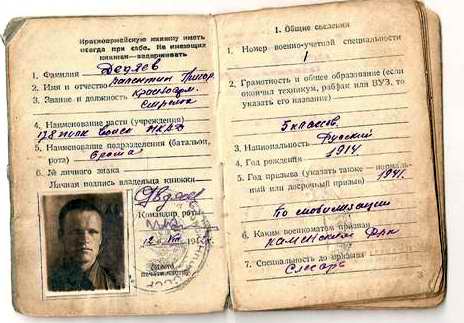 Красноармейскую книжку иметь
всегда при себе. Не имеющих
книжки—задерживать
1. Фамилия Дедяев
2. Имя и отчество Валентин Григор.
3. Звание и должность Красноарм.
Стрелок
4. Наименование части (учреждения)
178 полк войск НКВД
5. Наименование подразделения (батальон,
рота) рота
6. № личного знака
Личная подпись владельца книжки
Командир роты
12
Место
печати части
1. Общие сведения
1. Номер военно-учетной специальности
1
2. Грамотность и общее образование (если
окончил техникум, рабфак или ВУЗ, то
указать его название)
5 классов
3. Национальность Русский
4. Год рождения 1914
5. Год призыва (указать также — нормаль-
ный или досрочный призыв) 1941.
По мобилизации
6. Каким военкоматом призван
Каменским РВК
7. Специальность до призыва
Слесарь